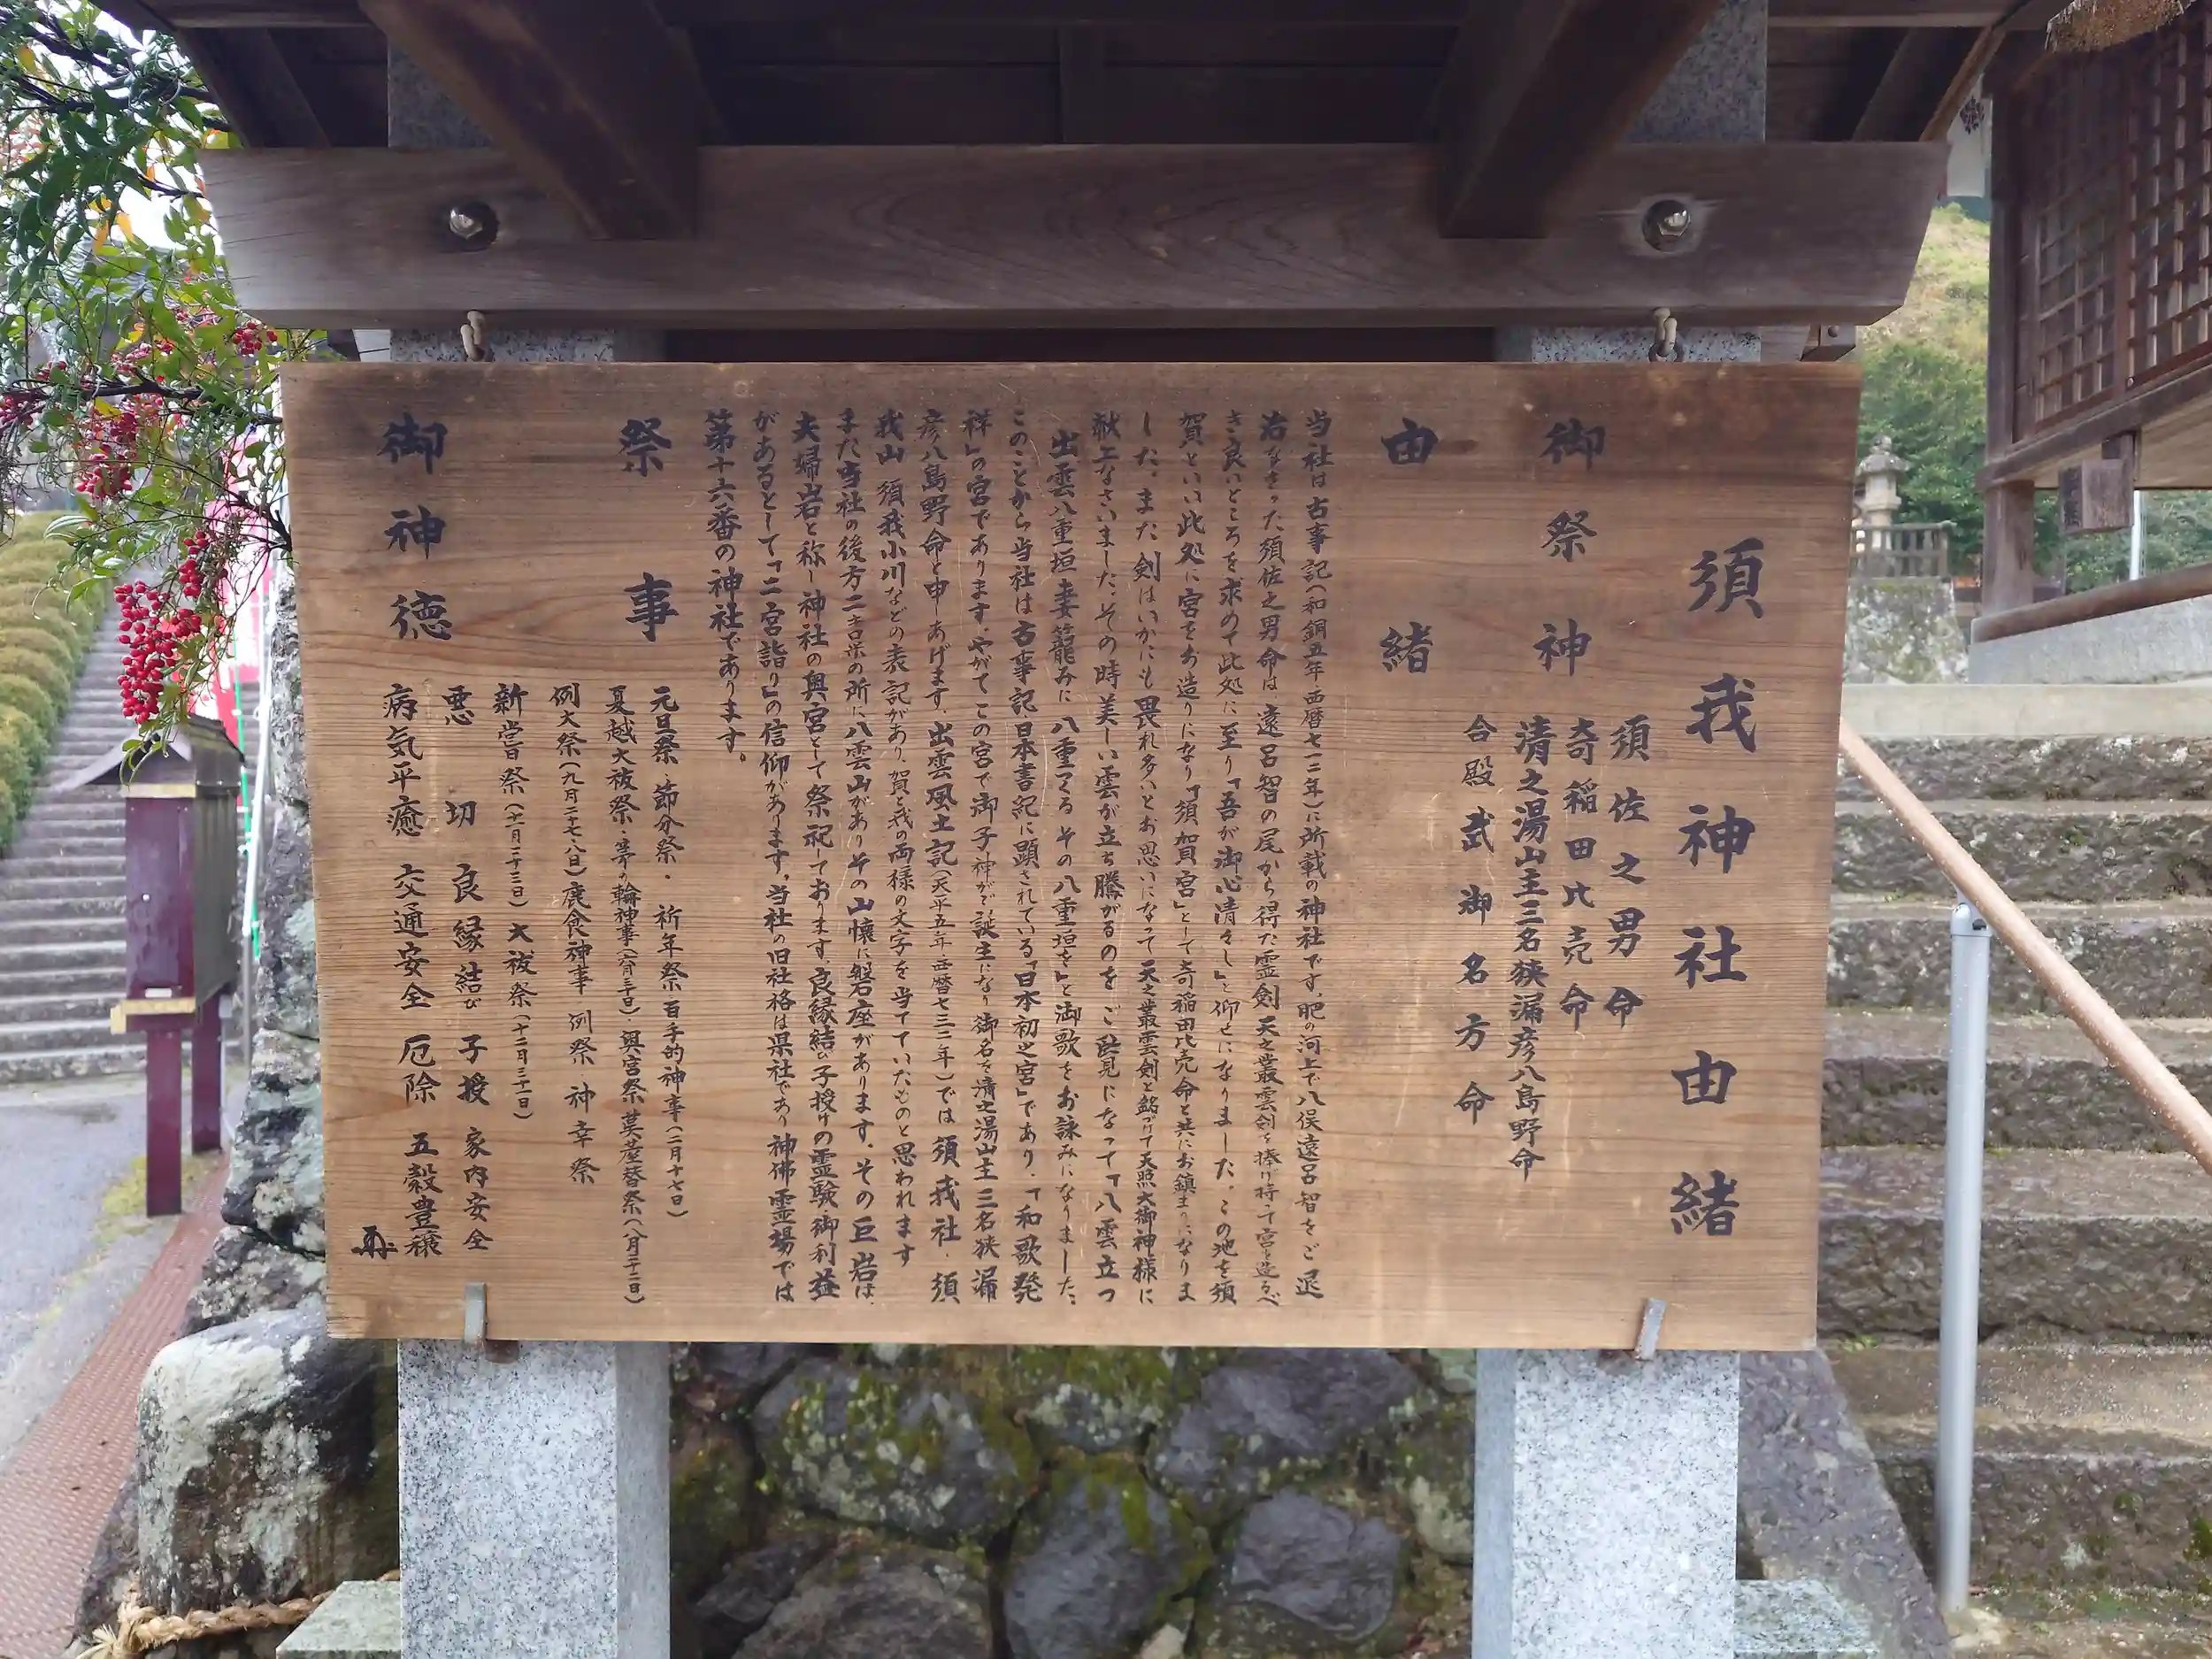 須我神社由緒
御祭神
須佐之男命
奇稲田比売命
清之湯山主三名狭漏彦八島野命
合殿 武御名方命
由緒
当社は古事記(和銅五年・西暦七一二年)に所載の神社です。肥の河上で八俣遠呂智をご退
治なさった須佐之男命は、遠呂智の尾から得た霊剣天之叢雲剣を捧げ持って宮を造るべ
き良いところを求めて此処に至り「吾が御心清々し」と仰せになりました。この地を須
賀といい此処に宮をお造りになり「須賀宮」として奇稲田比売命と共にお鎮まりになりま
した。また剣はいかにも畏れ多いとお思いになって天之叢雲剣と銘づけて天照大御神様に
献上なさいました。その時美しい雲が立ち騰がるのをご覧になって「八雲立つ
出雲八重垣 妻籠みに 八重つくる その八重垣を」と御歌をお詠みになりました。
このことから当社は古事記日本書紀に顕されている「日本初之宮」であり、「和歌発
祥」の宮であります。やがてこの宮で御子神がご誕生になり御名を清之湯山主三名狭漏
彦八島野命と申しあげます。出雲風土記(天平五年・西暦七三三年)では須我社・須
我山 須我小川などの表記があり、賀と我の両様の文字を当てていたものと思われます
また当社の後方二キロ米の所に八雲山があり、その山懐に磐座があります。その巨岩は、
夫婦岩と称し神社の奥宮として祭祀ております。良縁結び子授けの霊験御利益
があるとして「二宮詣り」の信仰があります。当社の旧社格は県社であり神佛霊場では
第十六番の神社であります。
祭事
元旦祭・節分祭・祈年祭 百手的神事(二月十七日)
夏越大祓祭・茅の輪神事(六月三十日)奥宮祭 茣蓙替祭(八月二十二日)
例大祭(九月二十七・八日)鹿食神事 例祭 神幸祭
新嘗祭(十一月二十三日)大祓祭(十二月三十一日)
御神徳
悪切 良縁結び 子授 家内安全
病気平癒 交通安全 厄除 五穀豊穣